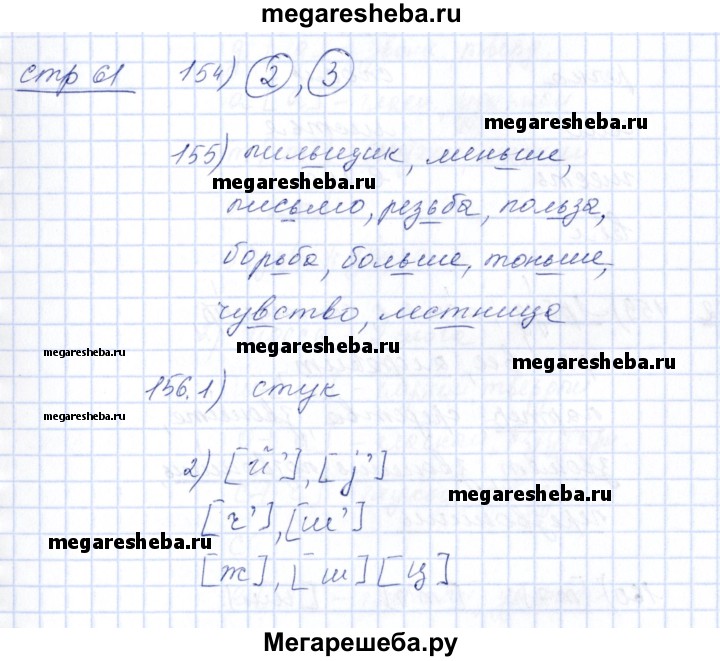 megaresheba.ru
стр 61 154) 2, 3
megaresheba.ru
155) пильщик, меньше,
megaresheba.ru
письмо, резьба, польза,
борьба, больше, тоньше,
чувство, лестница
megaresheba.ru megaresheba.ru megaresheba.ru
156.1) стук
megaresheba.ru
2) [й'], [j']
megaresheba.ru
[ч'], [ш']
megaresheba.ru
[ж], [ш] [ц]
Мегарешеба.ру